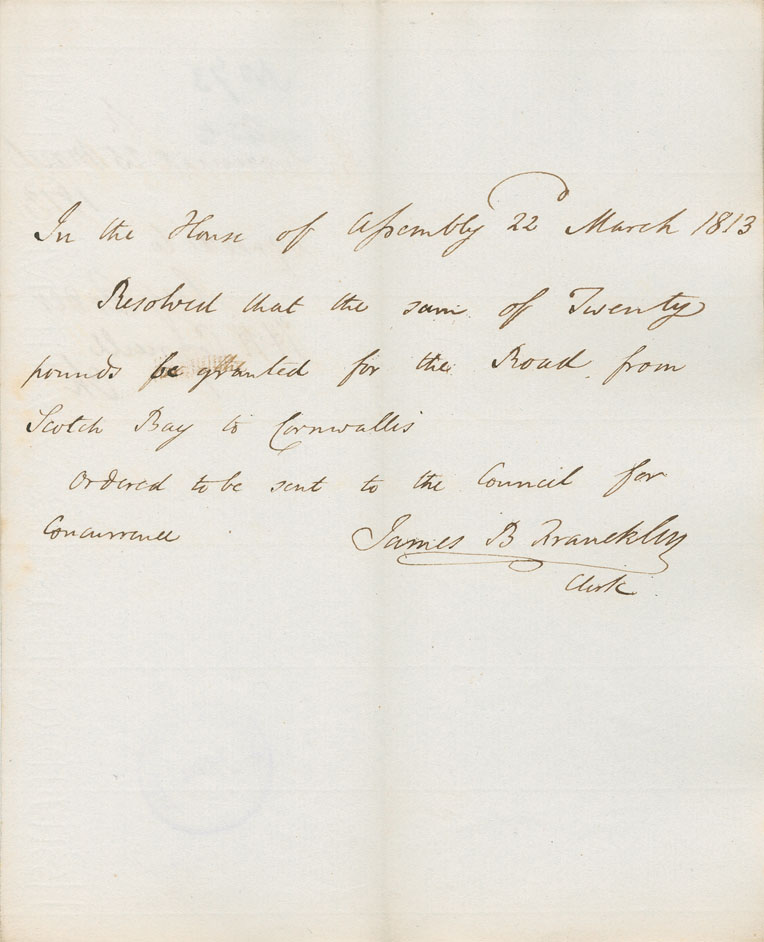 In the House of Assembly 22d March 1813
Resolved that the sum of Twenty
pounds be granted for the Road from
Scotch Bay to Cornwallis
Ordered to be sent to the Council for
Concurrence James B Francklin
Clerk